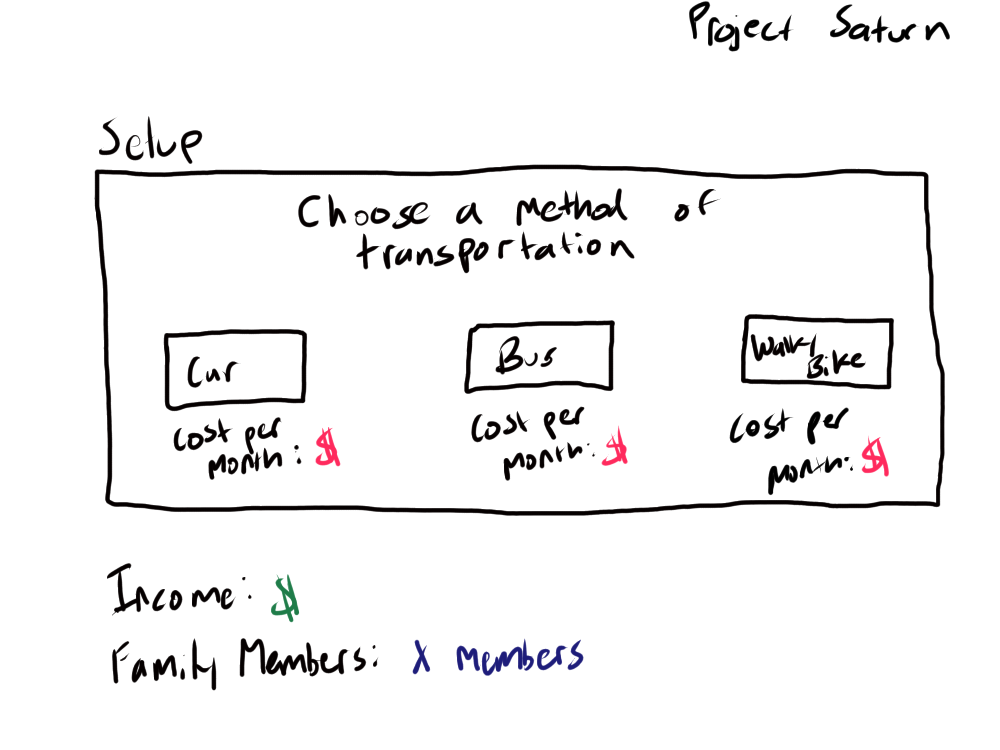 Project Saturn
Setup
Choose a method of
transportation
Car
Bus
Walk/
Bike
Cost per
month: $
Cost per
month: $
Cost per
month: $
Income: $
Family Members: X members